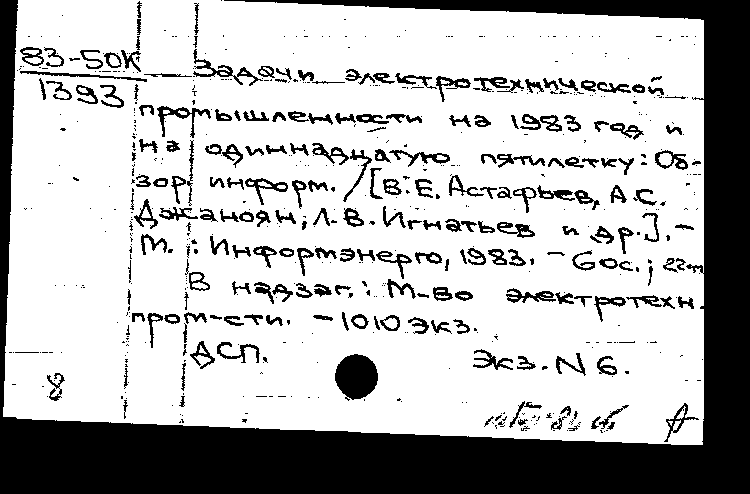 83-50К
1393
Задачи электротехнической
промышленности на 1983 год и
на одиннадцатую пятилетку: Об-
зор. информ. / [В.Е. Астафьев, А.С.
Джаноян, Л.В. Игнатьев и др.]. -
М.: Информэнерго, 1983. - 60с.; 22см
В надзаг.: М-во электротехн.
пром-сти. - 1010 экз.
ДСП. Экз. N 6.
8
А